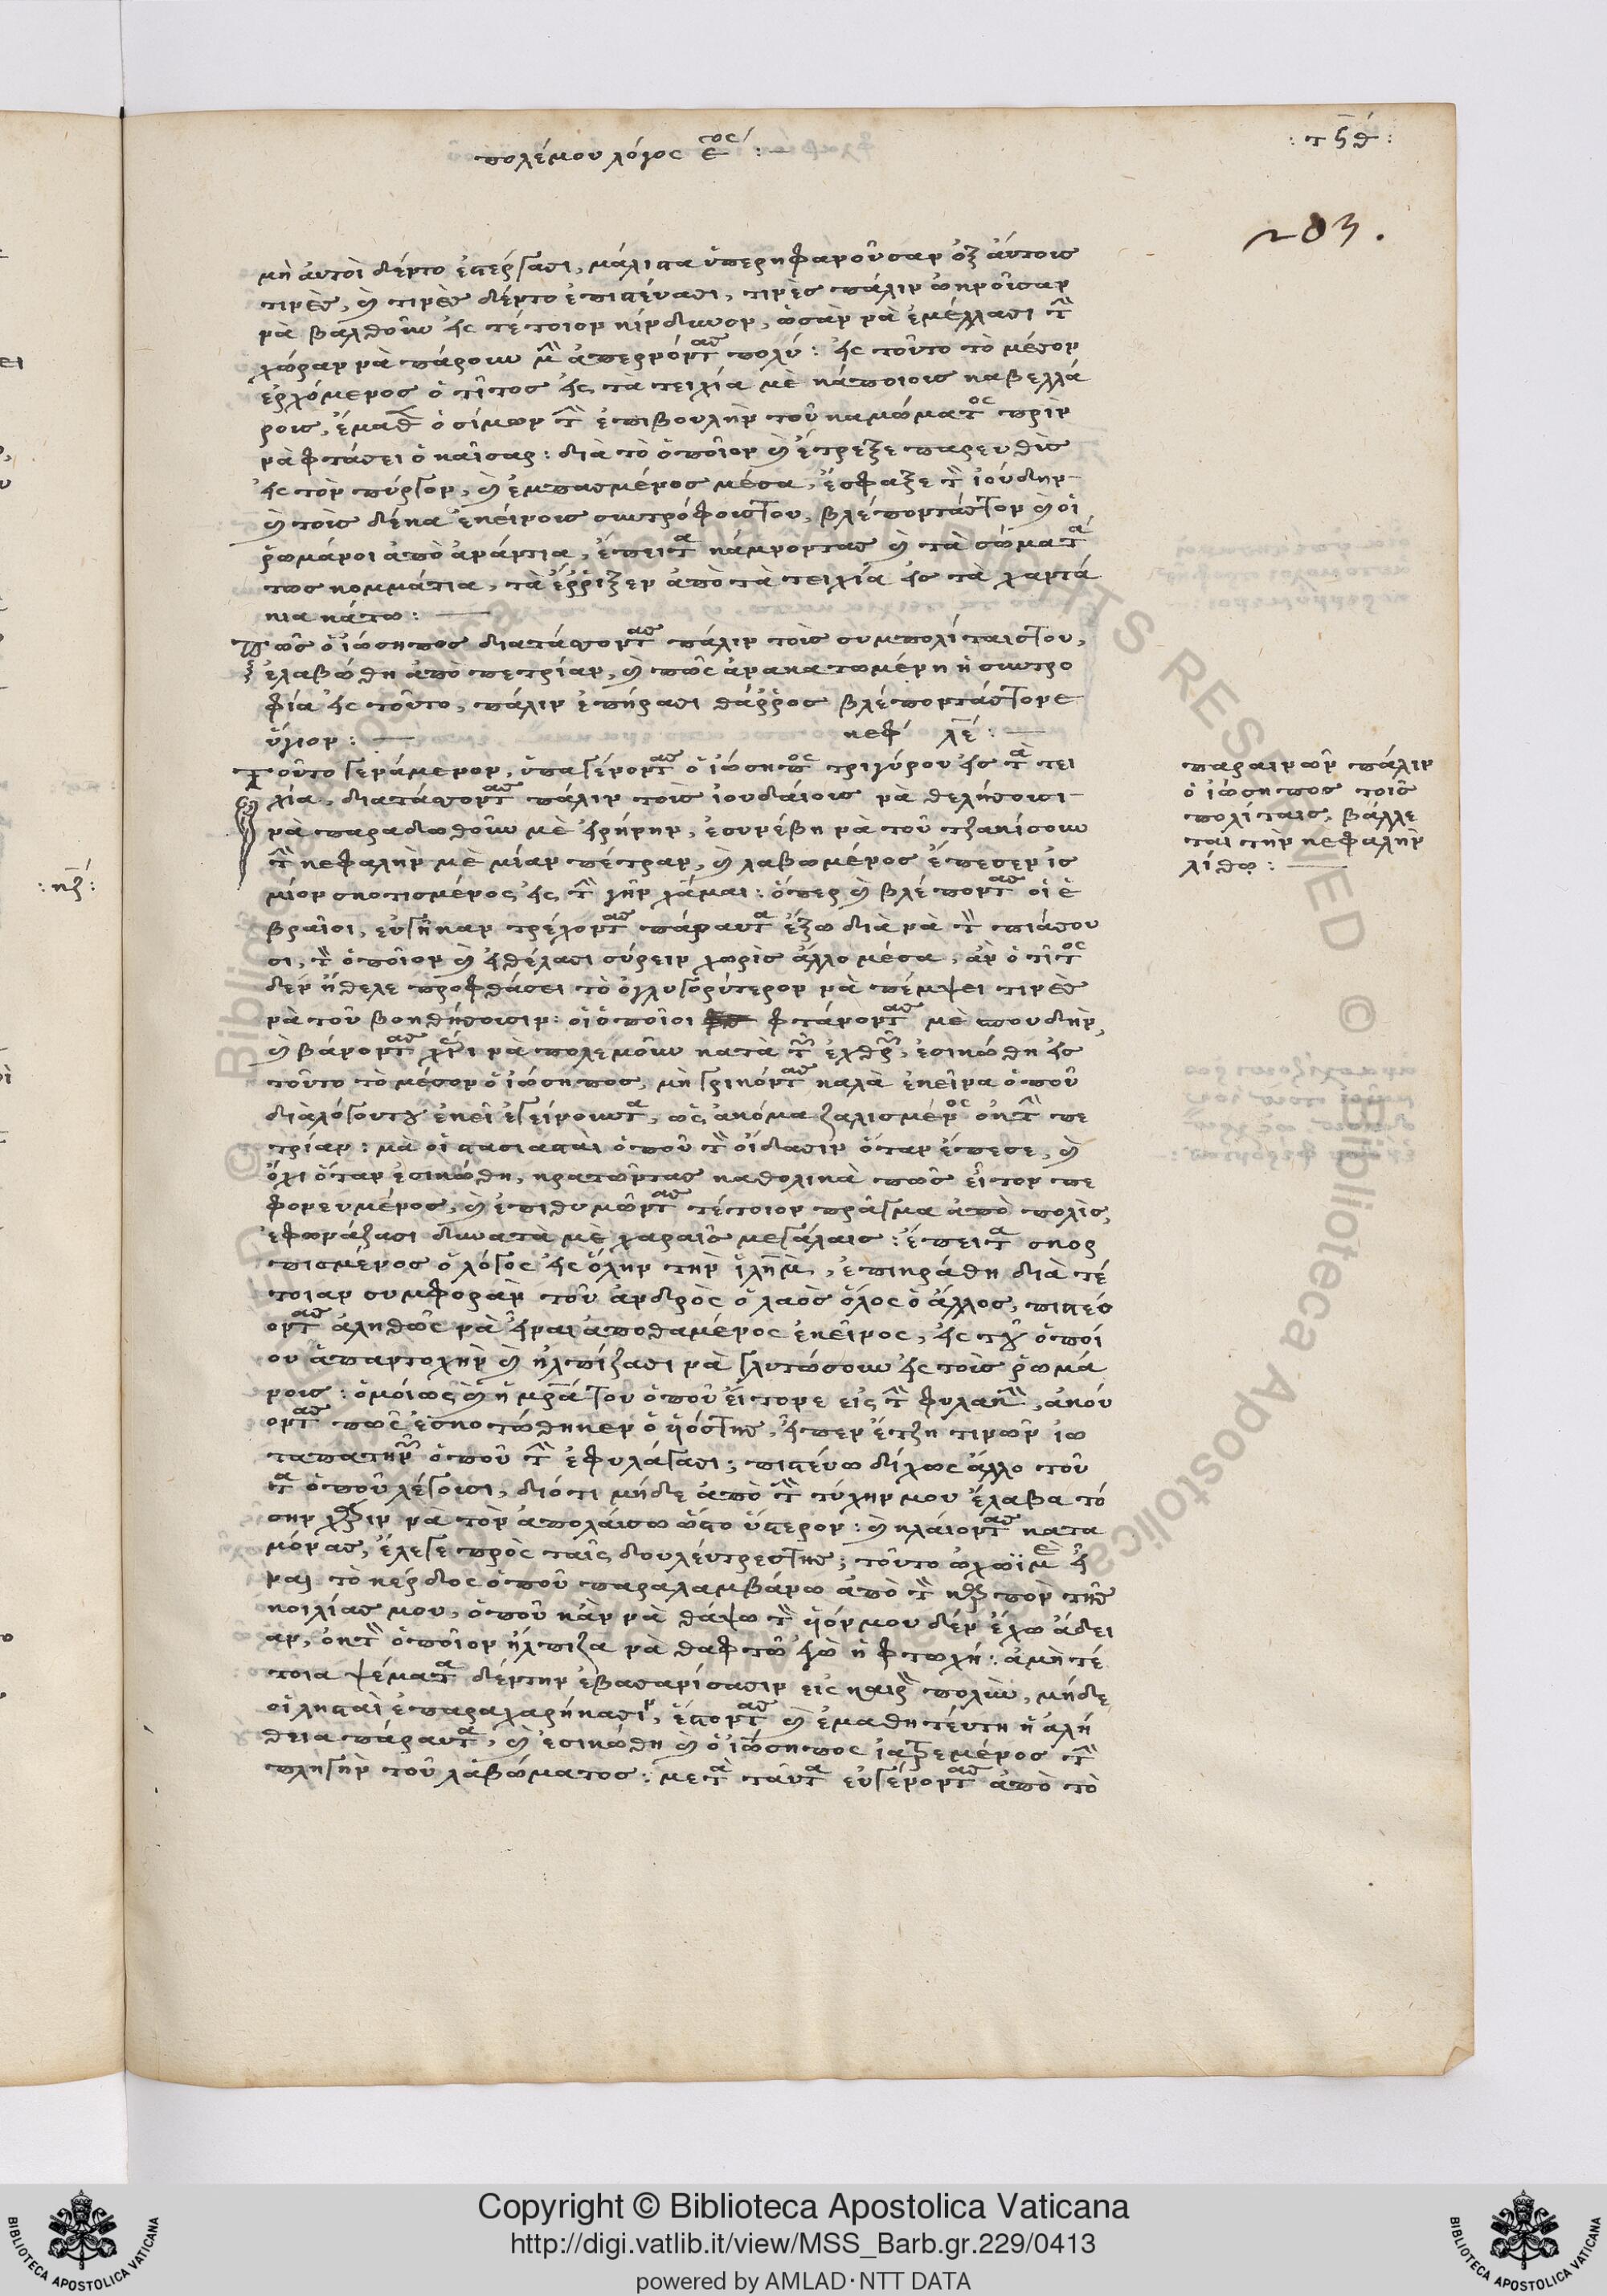 πολέμου λόγος ε^ος :
: τϟθ :
203.
μὴ ἀυτοὶ δέντο ἐστέρξασι, μάλιστα ὑπερηφανοῦσαν ὀξ ἀύτοις
τινὲς, καὶ τινὲς δέντο ἐπιστέυασι, τινὲς πάλιν ὠκνοῦσαν
νὰ βαλθοῦν εἰς τέτοιον κίνδυνον, ὡσὰν νὰ ἐμέλλασι τὴν
χώραν νὰ πάρουν μὴν ἀπερνόντας πολύ: εἰς τοῦτο τὸ μέσον
ἐρχόμενος ὁ τῖτος εἰς τὰ τειχία μὲ κάποιους καβελλά
ρους, ἔμαθε ὁ σίμων τὴν ἐπιβουλὴν τοῦ καμώματος πρὶν
νὰ φτάσει ὁ καῖσαρ: διὰ τὸ ὁποῖον καὶ ἔτρεξε παρευθὺς
εἰς τὸν πύργον, καὶ ἐμπασμένος μέσα, ἔσφαξε τὸν ἰούδην
καὶ τοὺς δέκα ἐκείνους συντρόφουςτου, βλέποντάςτον καὶ οἱ
ῥωμάνοι ἀπὸ ἀνάντια, ἔπειτα κάμνοντας καὶ τὰ σώματά
τως κομμάτια, τὰ ἔῤῥιξεν ἀπὸ τὰ τειχία εἰς τὰ χαντά
κια κάτω:
Πῶς ὁ ἰώσηπος διατάσσοντας πάλιν τοὺς συμπολίταιςτου,
ἐλαβώθη ἀπὸ πετρίαν, καὶ πῶς ἀνακατωμένη ἡ συντρο
φία εἰς τοῦτο, πάλιν ἐπήρασι θάῤῥος βλέποντάςτονε
ὕγιον: κεφ λε:
Τοῦτο γενάμενον, ὑπαγένοντας ὁ ἰώσηπος τριγύρου εἰς τὰ τει
χία, διατάσσοντας πάλιν τοὺς ἰουδαίους νὰ θελήσουσι
νὰ παραδωθοῦν μὲ εἰρήνην, ἐσυνέβη νὰ τοῦ τζακίσουν
τὴν κεφαλὴν μὲ μίαν πέτραν, καὶ λαβωμένος ἔπεσεν ἰσ
μίον σκοτισμένος εἰς τὴν γῆν χάμαι: ὅπερ καὶ βλέποντας οἱ ἑ
βραῖοι, εὐγῆκαν τρέχοντας πάραυτα ἔξω διὰ νὰ τὸν πιάσου
σι, τὸν ὁποῖον καὶ ἠθέλασι σύρειν χωρὶς ἄλλο μέσα, ἂν ὁ τῖτος
δεν ἤθελε προφθάσει τὸ ὀγλυγορύτερον νὰ πέμψει τινὲς
νὰ τοῦ βοηθήσουσιν: οἱ ὁποῖοι φτάνοντας μὲ σπουδὴν,
καὶ βάνοντας χέρι νὰ πολεμοῦν κατὰ τῶν ἐχθρῶν, ἐσικώθη εἰς
τοῦτο τὸ μέσον ὁ ἰώσηπος, μὴ γρικόντας καλὰ ἐκεῖνα ὁποῦ
διαλόγουτου ἐκεῖ ἐγείνουντα, ὡς ἀκόμα ζαλισμένος ὀκ τὴν πε
τρίαν: μὰ οἱ στασιασταὶ ὁποῦ τὸν οἴδασιν ὅταν ἔπεσε, καὶ
ὄχι ὅταν ἐσικώθη, κρατῶντας καθολικὰ πῶς εἶτον πε
φονευμένος, καὶ ἐπιθυμῶντας τέτοιον πρᾶγμα ἀπὸ πολὺς,
ἐφωνάζασι δυνατὰ μὲ χαραῖς μεγάλαις: ἔπειτα σκορ
πισμένος ὁ λόγος εἰς ὅλην τὴν ἰλὴμ, ἐπικράθη διὰ τέ
τοιαν συμφορὰν τοῦ ἀνδρὸς ὁ λαὸς ὅλος ὁ ἄλλος, πιστεύ
οντας ἀληθῶς νὰ εἶναι ἀποθαμένος ἐκεῖνος, εἰς τοῦ ὁποί
ου ἀπαντοχὴν καὶ ἠλπίζασι νὰ γλυτώσουν εἰς τοὺς ῥωμά
νους: ὁμοίως καὶ ἡ μάνατου ὁποῦ εἴτονε εἰς τὴν φυλακὴν, ἀκού
οντας πῶς ἐσκοτώθηκεν ὁ ὑόςτης, εἶπεν ἔτζη τινῶν ἰω
ταπατηνῶν ὁποῦ τὴν ἐφυλάγασι; πιστεύω δίχως ἄλλο τοῦ
τα ὁποῦ λέγουσι, διότι μήδε ἀπὸ τὴν τύχην μου ἔλαβα τό
σην χάριν νὰ τὸν ἀπολάυσω ὥστο ὕστερον: καὶ κλάιοντας κατα
μόνας, ἔλεγε πρὸς ταῖς δουλέυτρεςτης; τοῦτο ὠχωϊμὲ εἶ
ναι τὸ κέρδος ὁποῦ παραλαμβάνω ἀπὸ τὸν καρπὸν τῆς
κοιλίας μου, ὁποῦ κἂν νὰ θάψω τὸν ὑόν μου δέν ἔχω ἄδει
αν, ὀκ τὸν ὁποῖον ἤλπιζα νὰ θαφτῶ ἐγὼ ἡ φτωχή: ἀμὴ τέ
τοια ψέματα δέντην ἐβασανίσασιν εἰς καιρὸν πολὺν, μήδε
οἱ λησταὶ ἐπαραχαρήκασιν, ἔστοντας καὶ ἐμαθητέυτη ἡ ἀλή
θεια πάραυτα, καὶ ἐσικώθη καὶ ὁ ἰώσηπος ἰατρεμένος τὴν
πληγὴν τοῦ λαβώματος: μετὰ ταῦτα εὐγένοντας ἀπὸ τὸ
παραινῶν πάλιν
ὁ ἰώσηπος τοὺς
πολίταις, βάλλε
ται τὴν κεφαλὴν
λίθῳ:
Copyright © Biblioteca Apostolica Vaticana
http://digi.vatlib.it/view/MSS_Barb.gr.229/0413
powered by AMLAD·NTT DATA
BIBLIOTECA APOSTOLICA VATICANA
BIBLIOTECA APOSTOLICA VATICANA